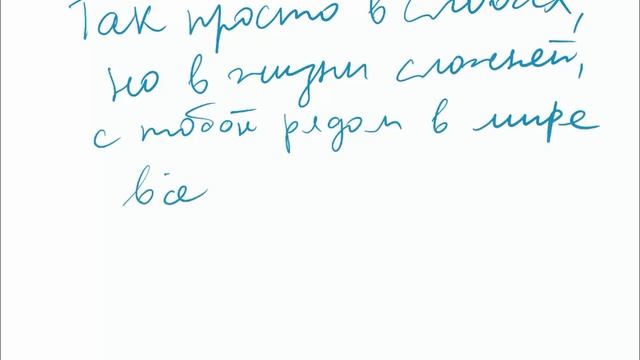 Так просто в словах,
но в жизни сложней,
с тобой рядом в мире
все